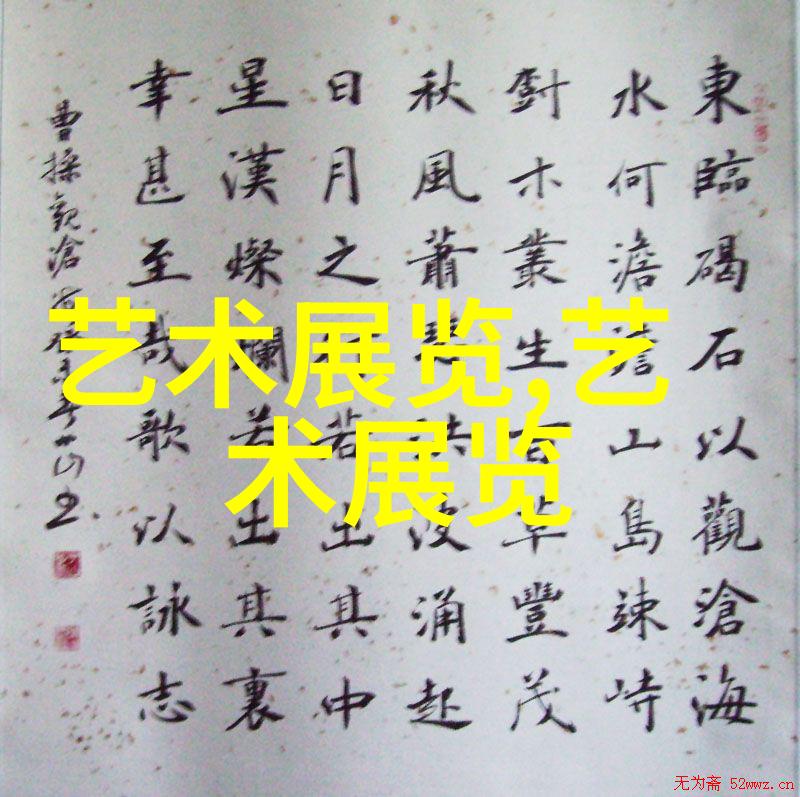 東臨碣石以觀滄海
水何澹澹山島竦峙
尌木叢生百草豐茂
秋風蕭瑟洪波涌起
日月之行若出其中
星漢燦爛若出其裏
幸甚至哉歌以詠志
曹操觀滄海
艺术展览,艺
术展览
无为斋 52wwz.cn